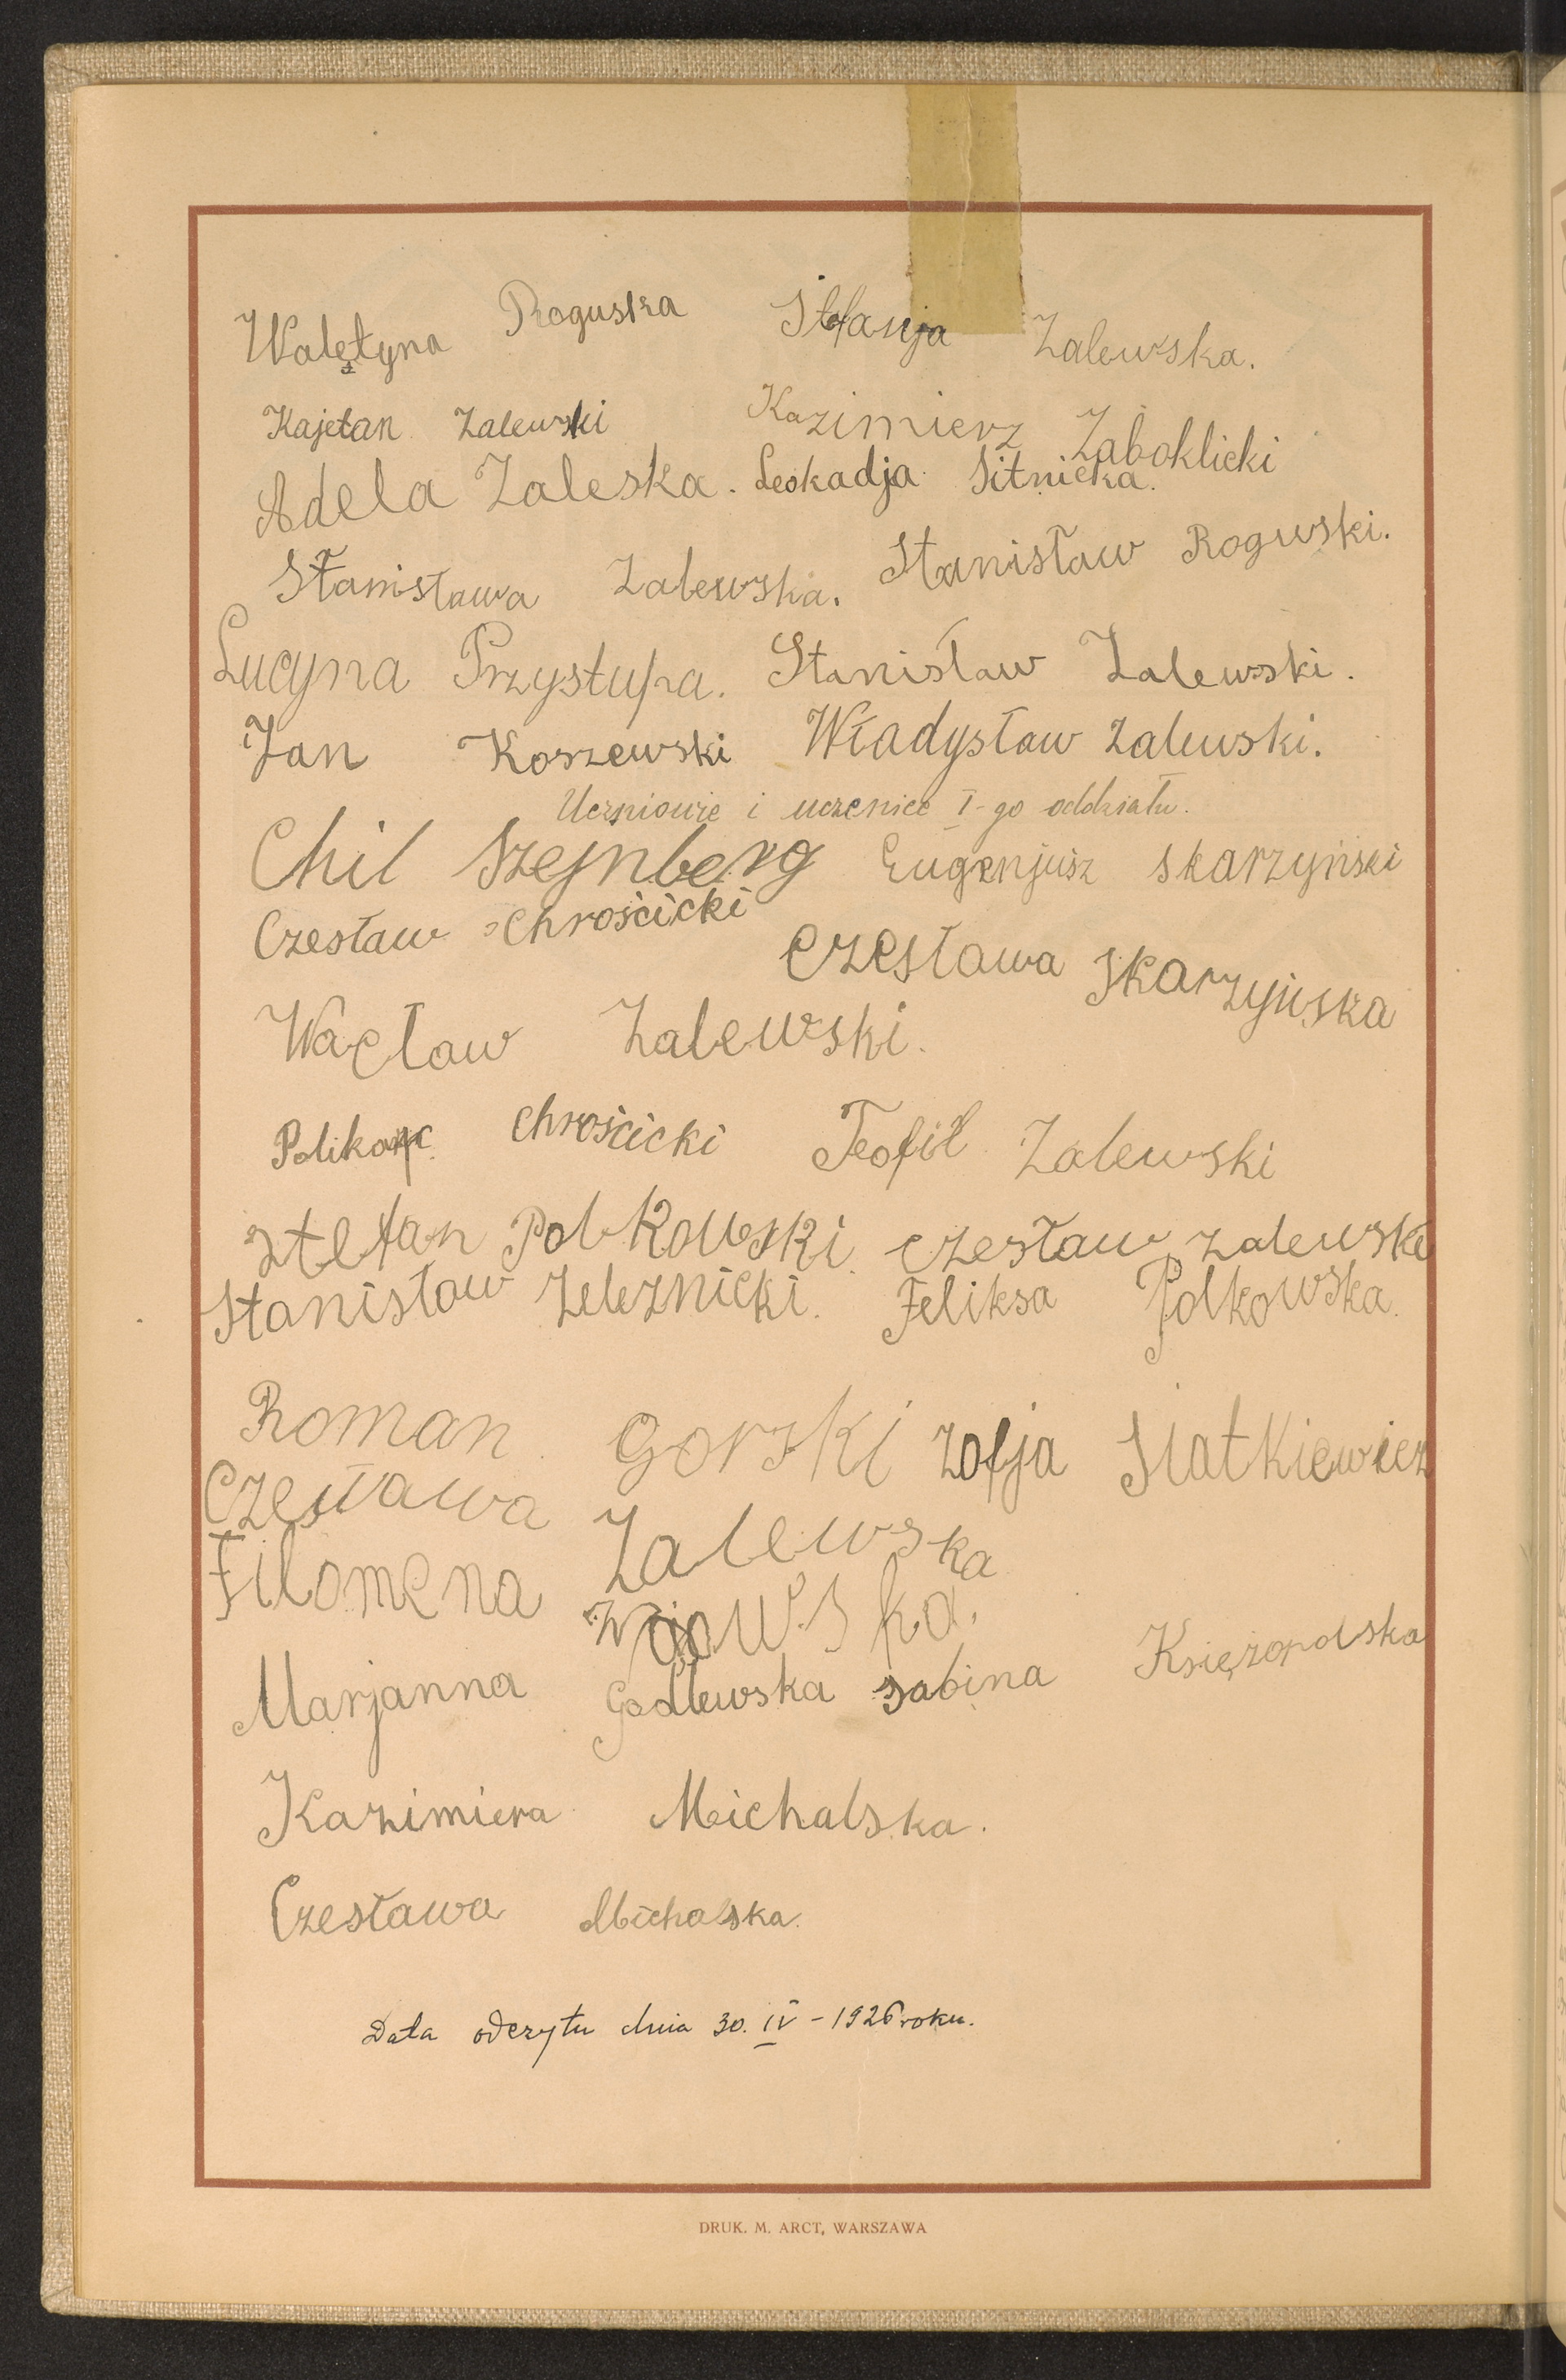 Walętyna Roguska Stefanja Zalewska.
Kajetan Zalewski Kazimierz Zaboklicki
Adela Zaleska. Leokadja Sitnicka.
Stanisława Zalewska. Stanisław Roguski.
Lucyna Przystupa. Stanisław Zalewski.
Jan Koszewski Władysław Zalewski.
Uczniowie i uczenice I-go oddziału.
Chil Szejnberg Eugenjusz Skarzyński
Czesław Chrościcki Czesława Skarzyńska
Wacław Zalewski.
Polikarp Chrościcki Teofil Zalewski
Stefan Polkowski Czesław Zalewski
Stanisław Zeleznicki. Feliksa Polkowska.
Roman Gorski Zofja Slatkiewicz
Czesława Zalewska
Filomena
Marjanna Godlewska Sabina Księżopolska
Kazimiera Michalska.
Czesława Michalska.
Data odczytu dnia 30. IV - 1926 roku.
DRUK. M. ARCT, WARSZAWA